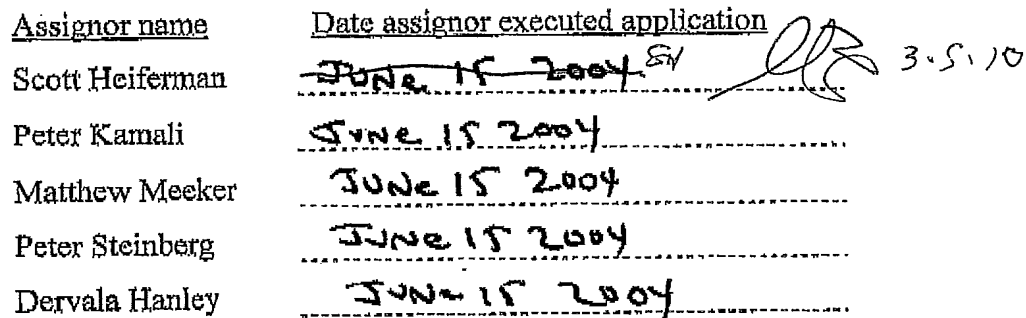 Assignor name Date assignor executed application
Scott Heiferman JUNE 15 2004 SH 3.5.10
Peter Kamali JUNE 15 2004
Matthew Meeker JUNE 15 2004
Peter Steinberg JUNE 15 2004
Dervala Hanley JUNE 15 2004